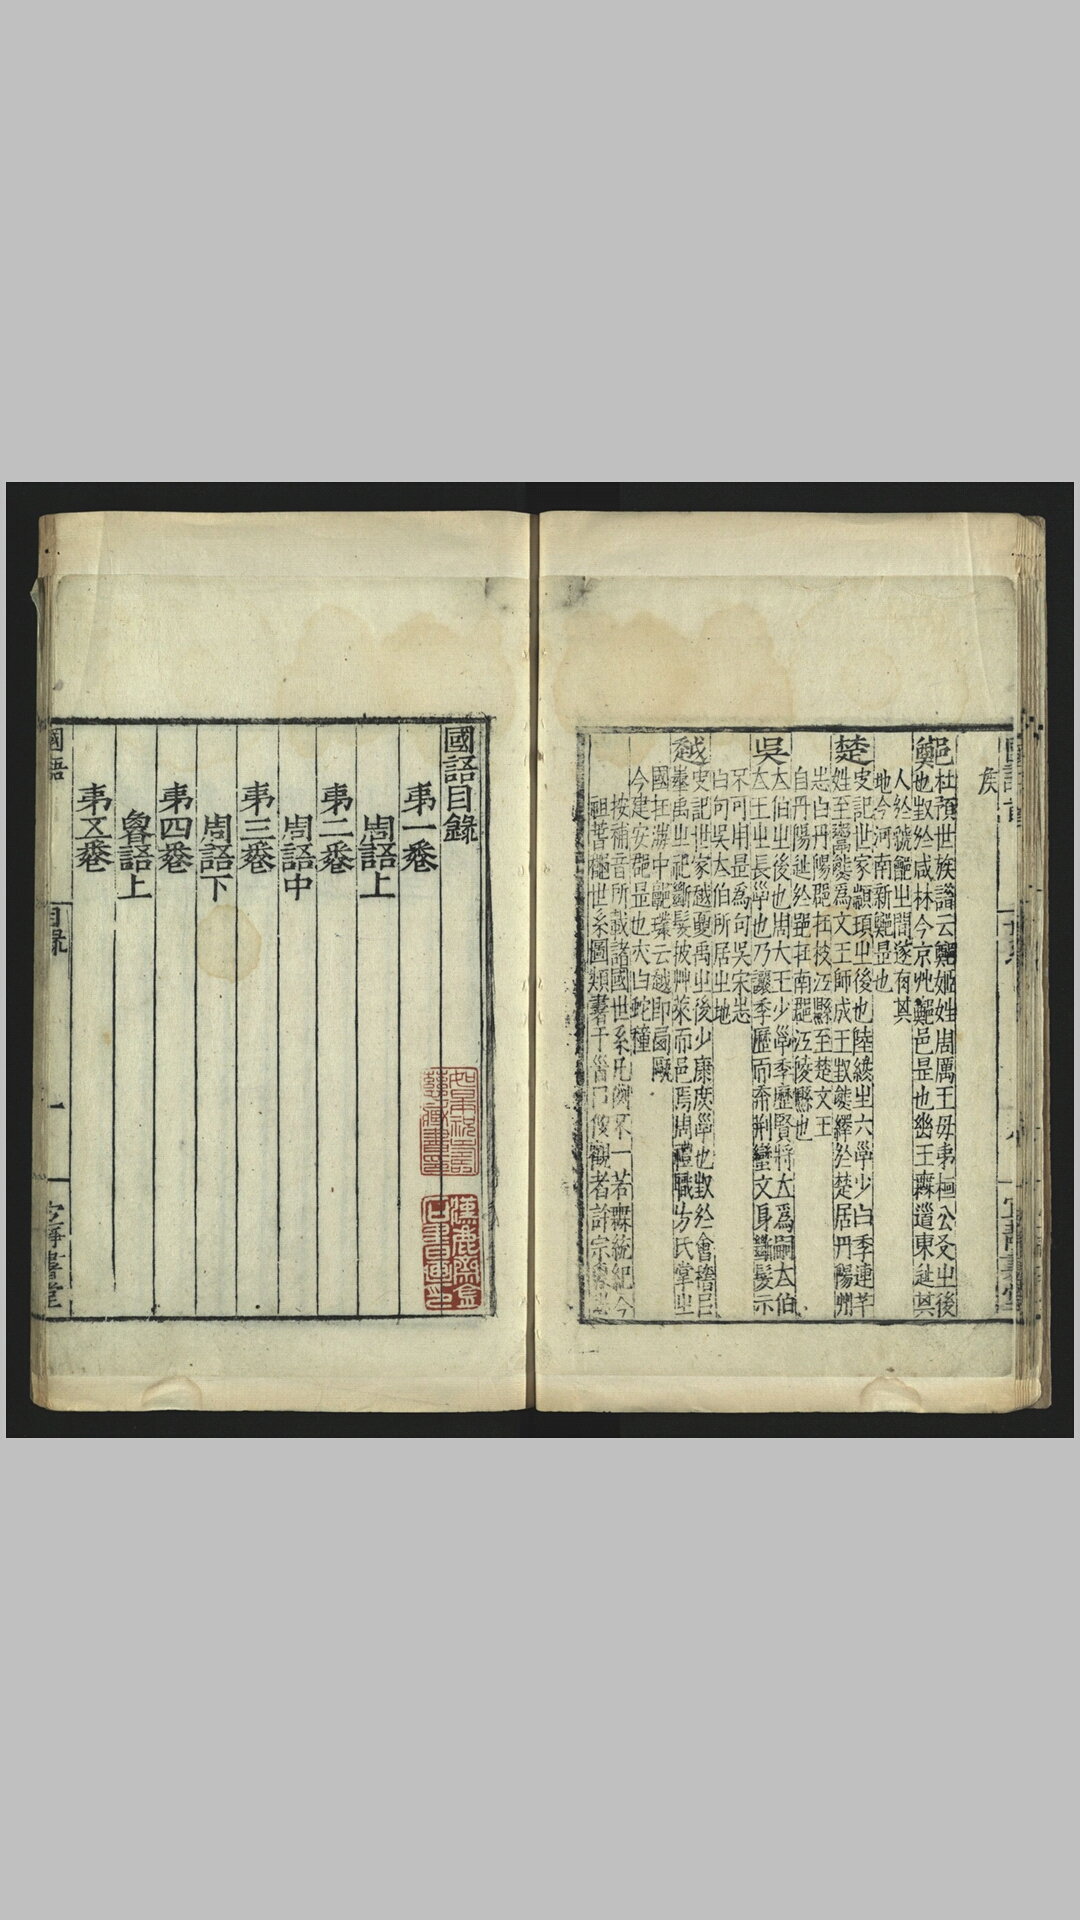 矦
鄭
杜預世族譜云鄭姬姓周厲王母弟桓公友之後
也封於咸林今京兆鄭邑是也幽王無道東遷其
人於虢鄶之間遂有其
地今河南新鄭是也
楚
史記世家顓頊之後也陸終生六子少曰季連芈
姓至鬻熊為文王師成王封熊繹於楚居丹陽
志曰丹陽郡在枝江縣至楚文王
自丹陽徙於郢在南郡江陵縣也
吳
太伯之後也周大王少子季歷賢將立為嗣太伯
太王之長子也乃讓季歷而奔荆蠻文身斷髮示
不可用是為句吳宋忠
曰句吳太伯所居之地
越
史記世家越夏禹之後少康庶子也封於會稽㠯
奉禹之祀斷髮披艸萊而邑焉周禮職方氏掌之
國在海中郭璞云越即閩甌
今建安郡是也亦曰蛇種
按補音所載諸國世系凡例不一若無統紀今
世系圖類書于首㠯俟觀者詳宗
國語目錄
弟一卷
周語上
弟二卷
周語中
弟三卷
周語下
弟四卷
魯語上
弟五卷
國語
目錄
一